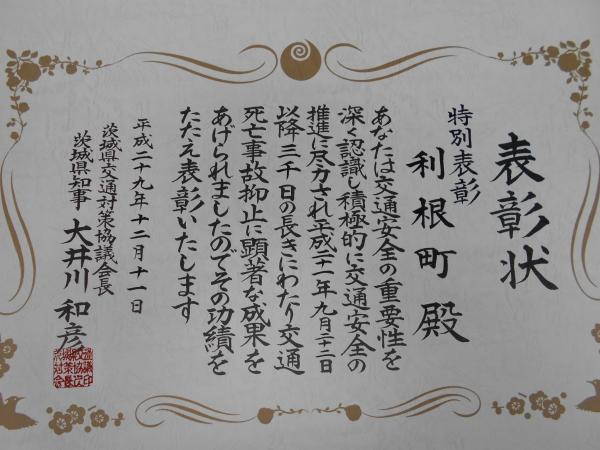 表彰状
特別表彰
利根町殿
あなたは交通安全の重要性を
深く認識し積極的に交通安全の
推進に尽力され平成二十一年九月二十二日
以降三千日の長きにわたり交通
死亡事故抑止に顕著な成果を
あげられましたのでその功績を
たたえ表彰いたします
平成二十九年十二月十一日
茨城県交通対策協議会長
茨城県知事 大井川和彦